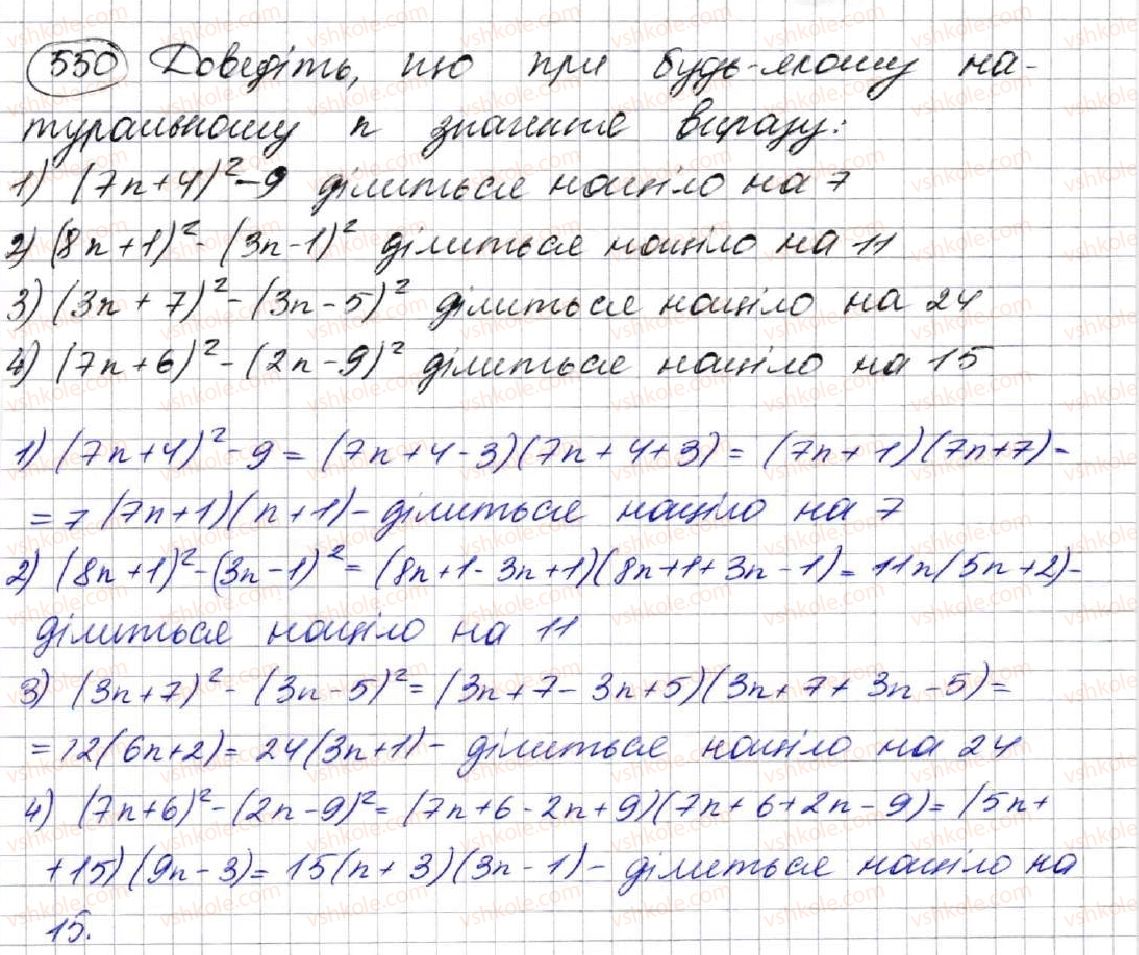 550 Доведіть, що при будь-якому на-
туральному n значення виразу:
1) (7n+4)²-9 ділиться націло на 7
2) (8n+1)² - (3n-1)² ділиться націло на 11
3) (3n+7)² - (3n-5)² ділиться націло на 24
4) (7n+6)² - (2n-9)² ділиться націло на 15
1) (7n+4)² - 9 = (7n+4-3)(7n+4+3) = (7n+1)(7n+7) =
= 7(7n+1)(n+1) - ділиться націло на 7
2) (8n+1)² - (3n-1)² = (8n+1-3n+1)(8n+1+3n-1) = 11n(5n+2) -
ділиться націло на 11
3) (3n+7)² - (3n-5)² = (3n+7-3n+5)(3n+7+3n-5) =
= 12(6n+2) = 24(3n+1) - ділиться націло на 24
4) (7n+6)² - (2n-9)² = (7n+6-2n+9)(7n+6+2n-9) = (5n+
+15)(9n-3) = 15(n+3)(3n-1) - ділиться націло на
15.